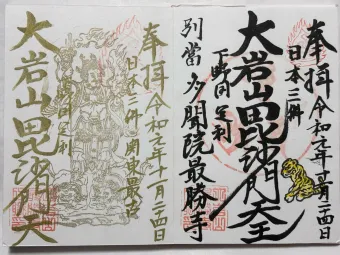 奉拝 令和元年十一月二十四日
日本三躰
大岩山毘沙門天王
下野国足利
別當 多聞院最勝寺
奉拝 令和元年十一月二十四日
日本三躰 関東最古
大岩山毘沙門天
下野国足利